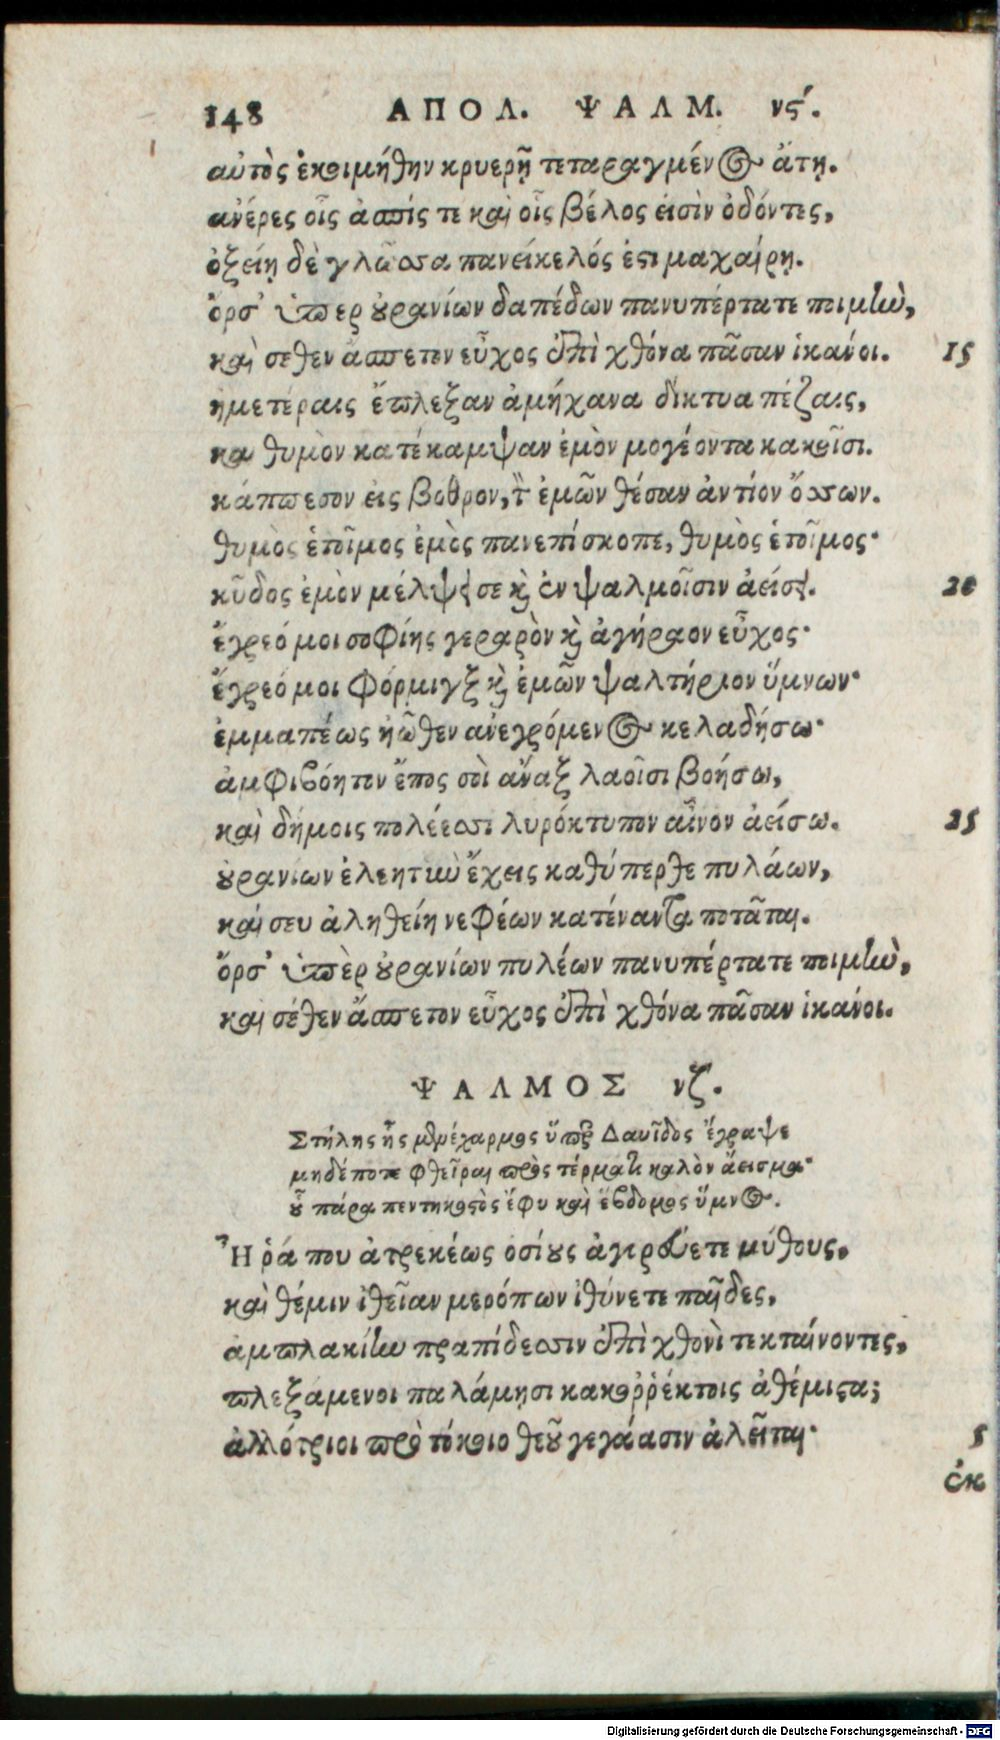 148 ΑΠΟΛ. ΨΑΛΜ. νϛ´.
αὐτὸς ἐκοιμήθην κρυερῇ τεταραγμένος ἄτῃ.
ἀνέρες οἷς ἀσπίς τε καὶ οἷς βέλος εἰσὶν ὀδόντες,
ὀξείη δὲ γλῶσσα πανείκελός ἐστι μαχαίρῃ.
ὄρσ᾽ ὑπερ οὐρανίων δαπέδων πανυπέρτατε ποιμὴν,
καὶ σεθεν ἄσπετον εὖχος ἐπὶ χθόνα πᾶσαν ἱκάνοι. 15
ἡμετέραις ἔπλεξαν ἀμήχανα δίκτυα πέζαις,
κα θυμὸν κατέκαμψαν ἐμὸν μογέοντα κακοῖσι.
κάππεσον εἰς βοθρον, τ̀ ἐμῶν θέσαν ἀντίον ὄσσων.
θυμὸς ἑτοῖμος ἐμὸς πανεπίσκοπε, θυμὸς ἑτοῖμος·
κῦδος ἐμὸν μέλψει σε καὶ ἐν ψαλμοῖσιν ἀείσει. 20
ἔγρεό μοι σοφίης γεραρὸν καὶ ἀγήραον εὖχος·
ἔγρεό μοι φόρμιγξ καὶ ἐμῶν ψαλτήριον ὕμνων·
ἐμμαπέως ἠῶθεν ἀνεγρόμενος κελαδήσω·
ἀμφιβόητον ἔπος σοὶ ἄναξ λαοῖσι βοήσω,
καὶ δήμοις πολέεσσι λυρόκτυπον αἶνον ἀείσω. 25
οὐρανίων ἐλεητὺν ἔχεις καθύπερθε πυλάων,
καί σευ ἀληθείη νεφέων κατέναντα ποτᾶται.
ὄρσ᾽ ὑπὲρ οὐρανίων πυλέων πανυπέρτατε ποιμὴν,
καὶ σέθεν ἄσπετον εὖχος ἐπὶ χθόνα πᾶσαν ἱκάνοι.
ΨΑΛΜΟΣ νζ´.
Στήλης ἧς μενέχαρμος ὕπερ Δαυῖδος ἔγραψε
μηδέποτε φθεῖραι πρὸς τέρματι καλὸν ἄεισμα·
οὗ πάρα πεντηκοστὸς ἔφυ καὶ ἕβδομος ὕμνος.
Ἦ ῥά που ἀτρεκέως ὁσίους ἀγορεύετε μύθους,
καὶ θέμιν ἰθεῖαν μερόπων ἰθύνετε παῖδες,
ἀμπλακίην πραπίδεσσιν ἐπὶ χθονὶ τεκταίνοντες,
πλεξάμενοι παλάμῃσι κακοῤῥέκτοις ἀθέμιστα;
ἀλλότριοι πρὸ τόκοιο θεοῦ γεγάασιν ἀλεῖται· 5
ἐκ
Digitalisierung gefördert durch die Deutsche Forschungsgemeinschaft - DFG